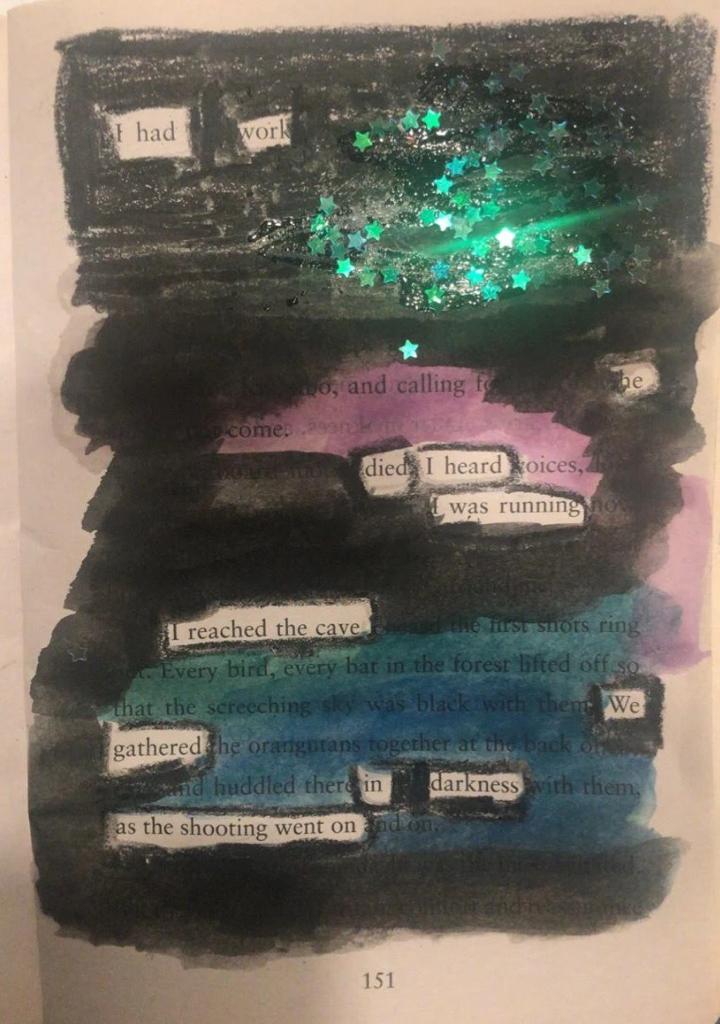 I had work
and calling he
come.
died I heard voices,
I was running
I reached the cave the first shots ring
Every bird, every bat in the forest lifted off so
that the screeching sky was black with them We
gathered the orangutans together at the back
and huddled there in darkness with them,
as the shooting went on and on.
and reassurance
151